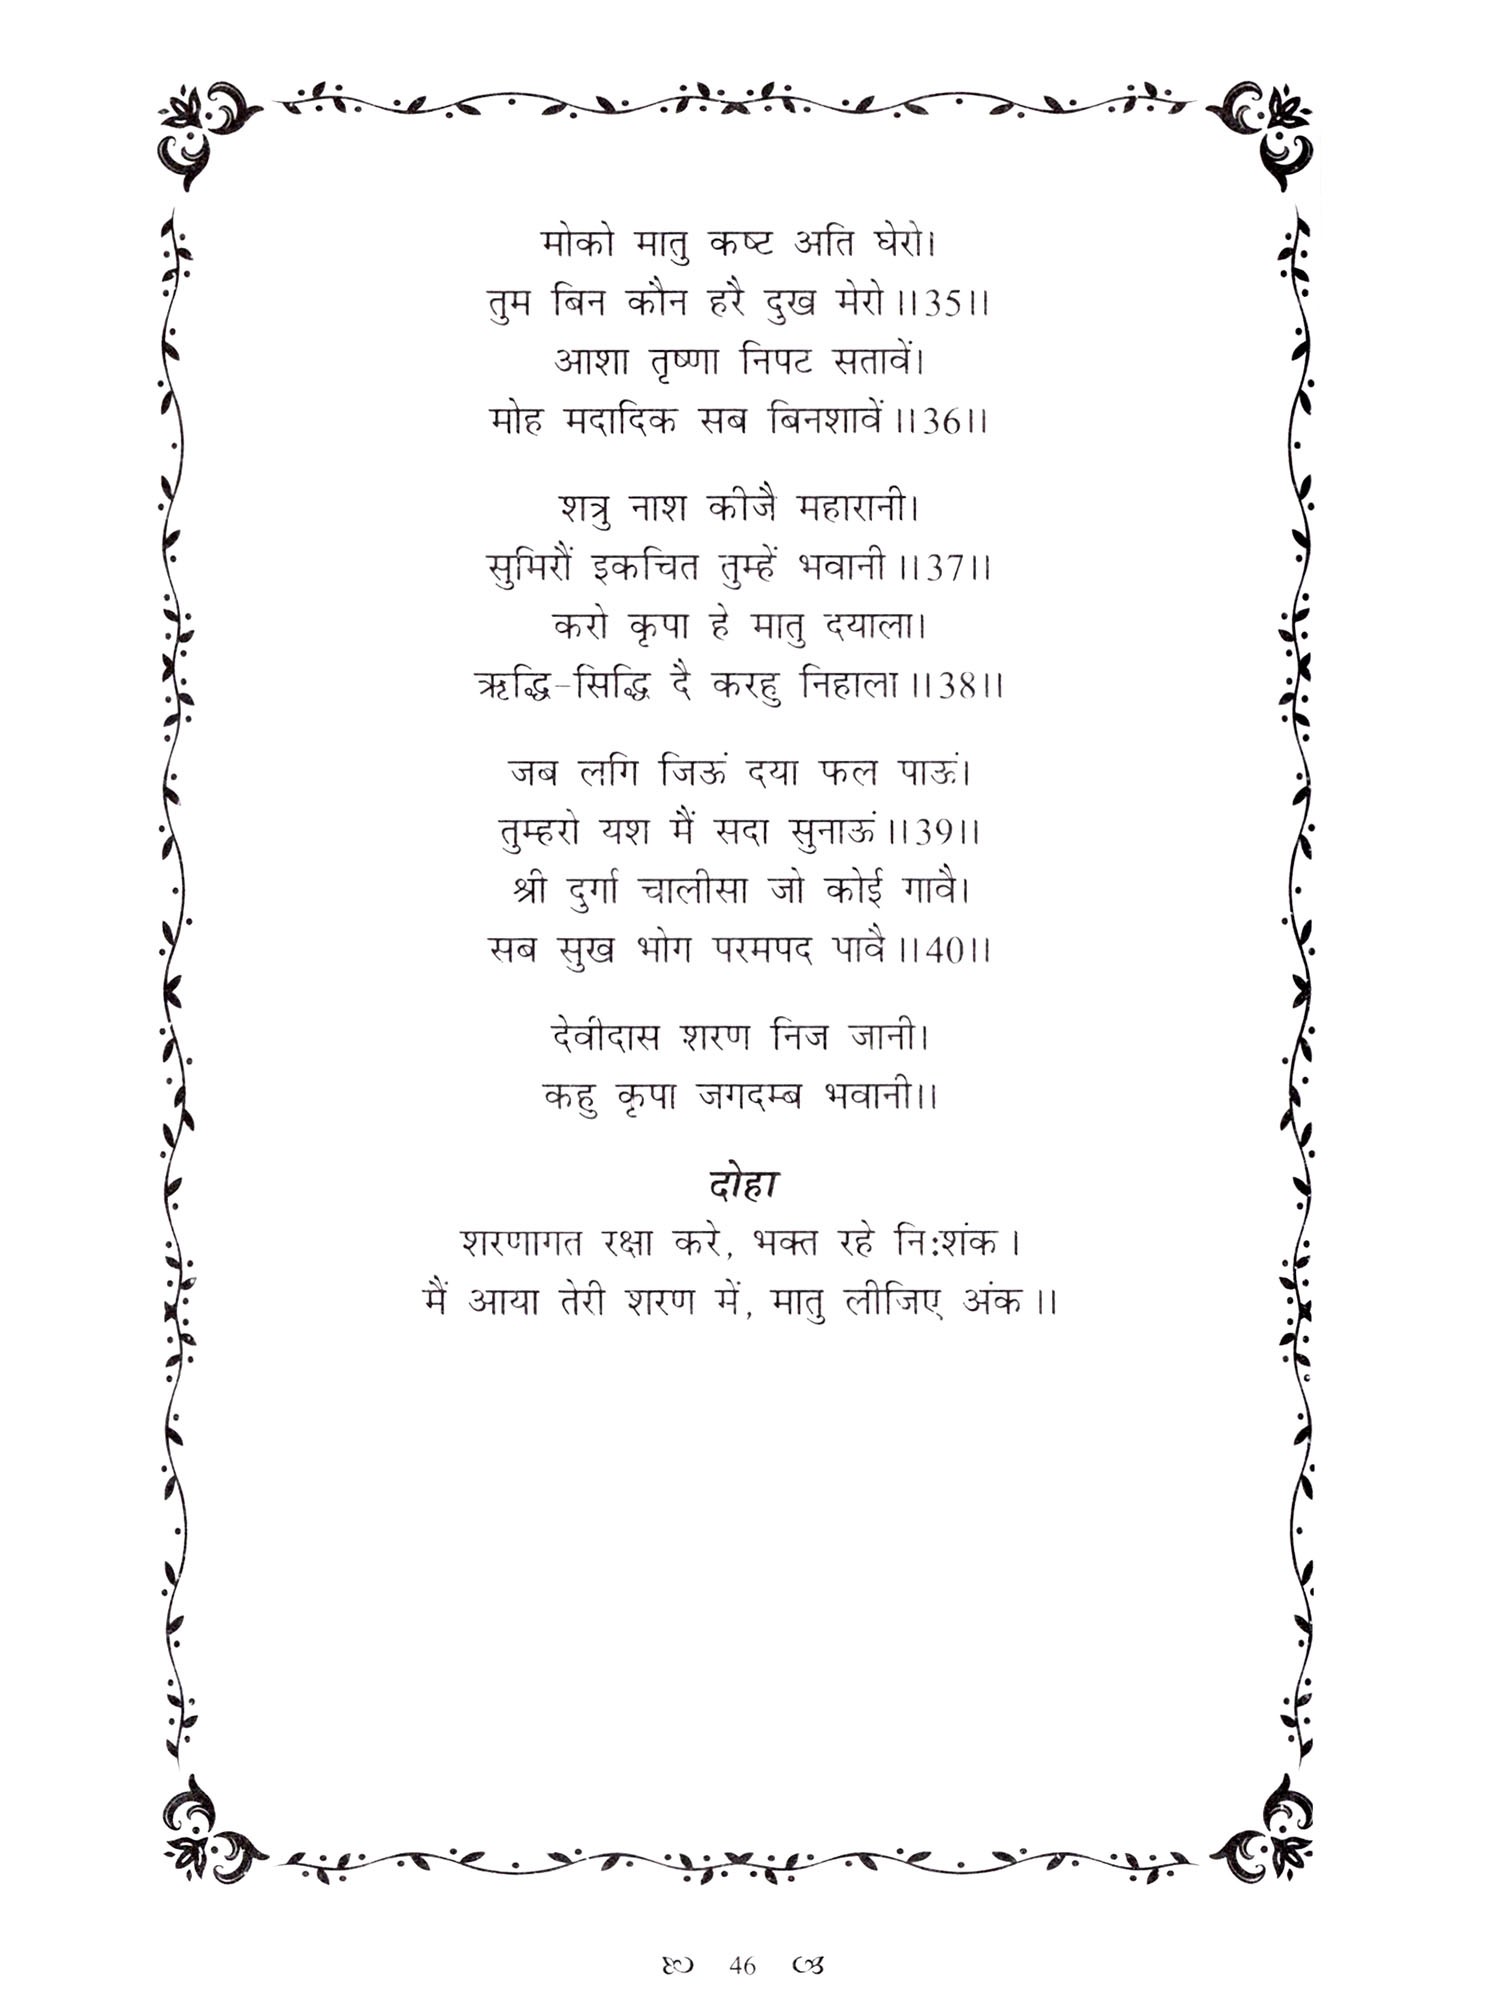 मोको मातु कष्ट अति घेरो।
तुम बिन कौन हरै दुख मेरो।।35।।
आशा तृष्णा निपट सतावें।
मोह मदादिक सब बिनशावें।।36।।
शत्रु नाश कीजै महारानी।
सुमिरौं इकचित तुम्हें भवानी।।37।।
करो कृपा हे मातु दयाला।
ऋद्धि-सिद्धि दै करहु निहाला।।38।।
जब लगि जिऊं दया फल पाऊं।
तुम्हरो यश मैं सदा सुनाऊं।।39।।
श्री दुर्गा चालीसा जो कोई गावै।
सब सुख भोग परमपद पावै।।40।।
देवीदास शरण निज जानी।
कहु कृपा जगदम्ब भवानी।।
दोहा
शरणागत रक्षा करे, भक्त रहे नि:शंक।
मैं आया तेरी शरण में, मातु लीजिए अंक।।
46